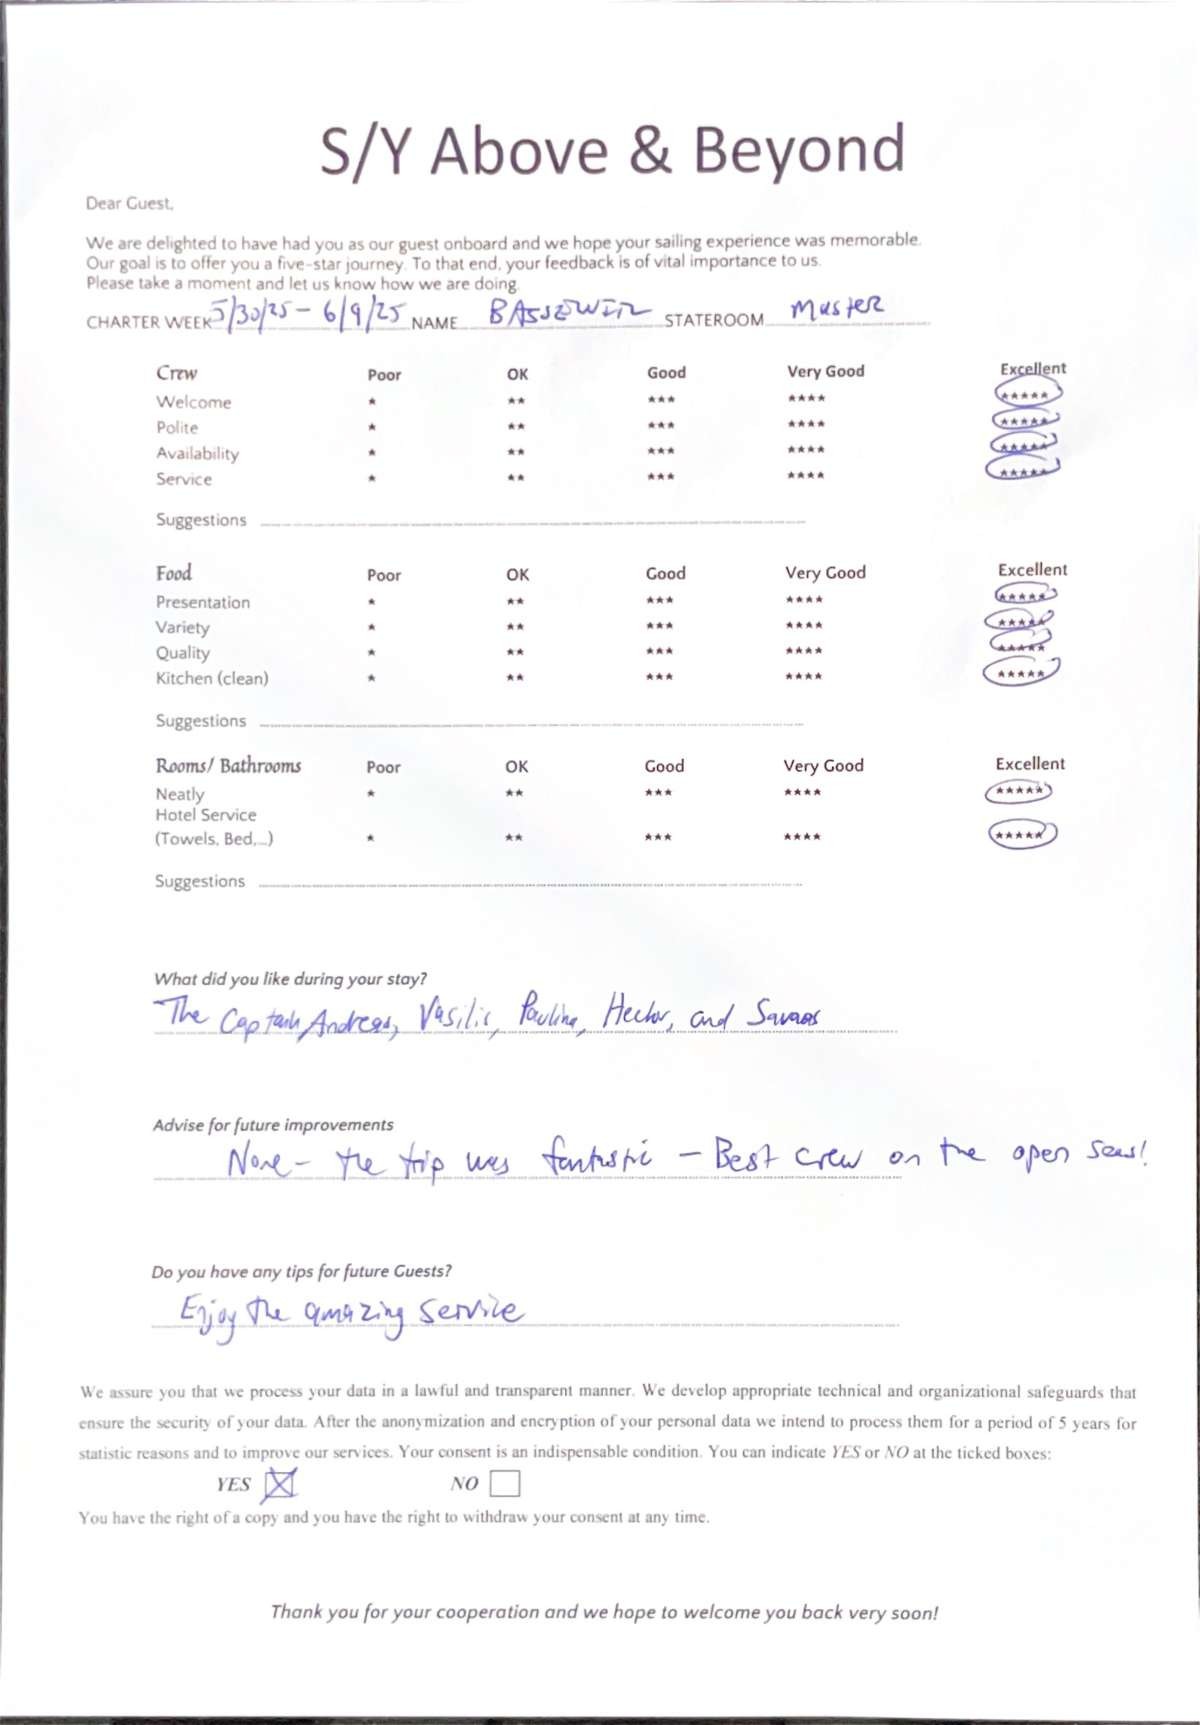 S/Y Above & Beyond
Dear Guest,
We are delighted to have had you as our guest onboard and we hope your sailing experience was memorable.
Our goal is to offer you a five-star journey. To that end, your feedback is of vital importance to us.
Please take a moment and let us know how we are doing.
CHARTER WEEK 5/30/25 - 6/9/25 NAME STATEROOM Master
Crew Poor OK Good Very Good Excellent
Welcome * ** *** **** *****
Polite * ** *** **** *****
Availability * ** *** **** *****
Service * ** *** **** *****
Suggestions
Food Poor OK Good Very Good Excellent
Presentation * ** *** **** *****
Variety * ** *** **** *****
Quality * ** *** **** *****
Kitchen (clean) * ** *** **** *****
Suggestions
Rooms/ Bathrooms Poor OK Good Very Good Excellent
Neatly * ** *** **** *****
Hotel Service
(Towels, Bed,...) * ** *** **** *****
Suggestions
What did you like during your stay?
The Captain Andreas, Vasilis, Pauline, Hector, and
Advise for future improvements
None - the trip was fantastic - Best crew on the open seas!
Do you have any tips for future Guests?
Enjoy the amazing service
We assure you that we process your data in a lawful and transparent manner. We develop appropriate technical and organizational safeguards that
ensure the security of your data. After the anonymization and encryption of your personal data we intend to process them for a period of 5 years for
statistic reasons and to improve our services. Your consent is an indispensable condition. You can indicate YES or NO at the ticked boxes:
YES NO
You have the right of a copy and you have the right to withdraw your consent at any time.
Thank you for your cooperation and we hope to welcome you back very soon!